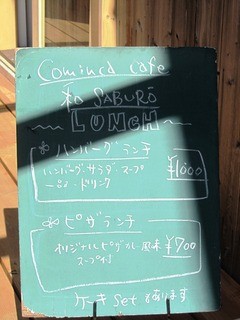 Cominca cafe
和 SABURO
LUNCH
ハンバーグランチ
ハンバーグ サラダ スープ ¥1000
一品・ドリンク
ピザランチ
オリジナルピザ 風味 ¥700
スープ付
ケーキ Set もあります